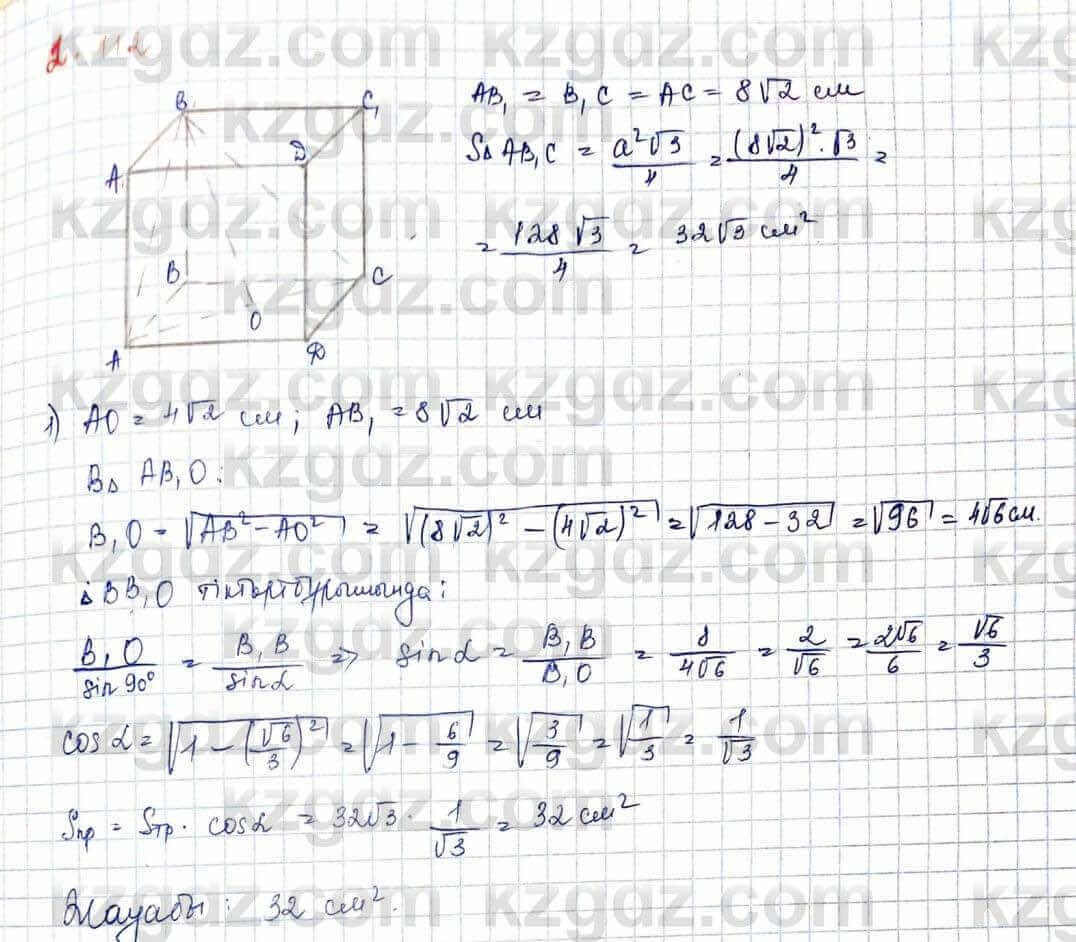 2.112
B₁ C₁
A₁ D₁
B C
O
A D
AB₁ = B₁C = AC = 8√2 см
S△AB₁C = a²√3/4 = (8√2)²·√3/4 =
= 128√3/4 = 32√3 см²
1) AO = 4√2 см; AB₁ = 8√2 см
В△ AB₁O:
B₁O = √(AB²-AO²) = √((8√2)² - (4√2)²) = √(128-32) = √96 = 4√6 см.
△BB₁O тіктөртбұрышында:
B₁O/sin90° = B₁B/sinα => sinα = B₁B/B₁O = 8/4√6 = 2/√6 = 2√6/6 = √6/3
cosα = √(1-(√6/3)²) = √(1-6/9) = √(3/9) = √(1/3) = 1/√3
Sпр = Sтр · cosα = 32√3 · 1/√3 = 32 см²
Жауабы: 32 см².
kzgdz.com